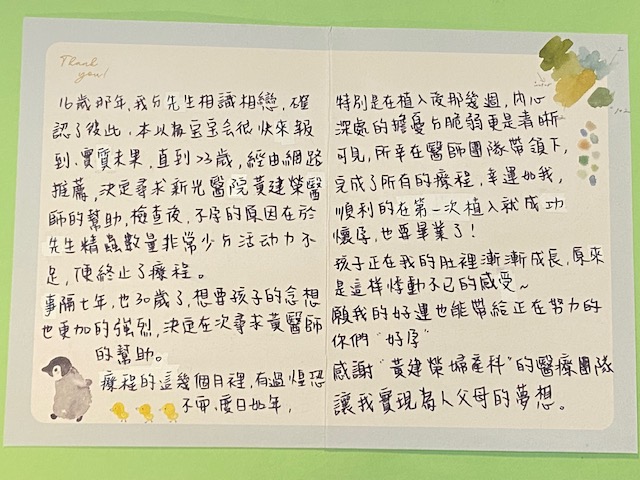 Thank
you!
16歲那年,我与先生相識相戀,確
認了彼此,本以為宝宝会很快來報
到,實質未果,直到23歲,經由網路
推薦,決定尋求新光醫院黃建榮醫
師的幫助,檢查後,不孕的原因在於
先生精蟲數量非常少与活动力不
足,便終止了療程。
事隔七年,也30歲了,想要孩子的念想
也更加的強烈,決定在次尋求黃醫師
的幫助。
療程的這幾個月裡,有過惶恐
不安、度日如年,
特別是在植入後那幾週,內心
深處的擔憂与脆弱更是清晰
可見,所幸在醫師團隊帶領下,
完成了所有的療程,幸運如我,
順利的在第一次植入就成功
懷孕,也要畢業了!
孩子正在我的肚裡漸漸成長,原來
是這样悸動不已的感受~
願我的好運也能帶給正在努力的
你們"好孕"
感謝"黃建榮婦產科"的醫療團隊
讓我實現為人父母的夢想。